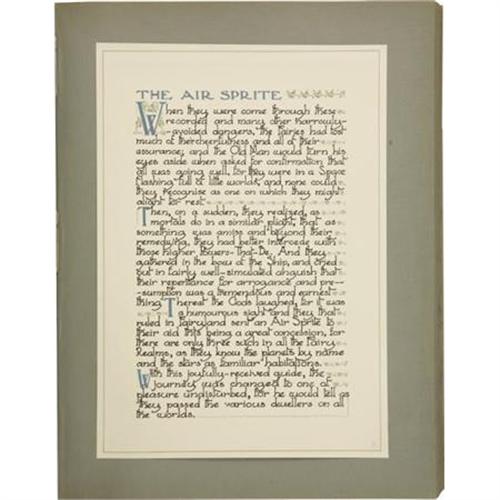 THE AIR SPRITE
When they were come through these
recorded and many other narrowly-
-avoided dangers, the fairies had lost
much of their cheerfulness and all of their
assurance; and the Old Man would turn his
eyes aside when asked for confirmation that
all was going well, for they were in a Space
flashing full of little worlds, and none could
they recognise as one on which they might
alight to rest.
Then, on a sudden, they realised, as
mortals do in a similar plight, that as
something was amiss and beyond their
remedying, they had better intercede with
those higher Powers-That-Be. And they
gathered in the bow of the Ship, and cried
out in fairly well-simulated anguish that
their repentance for arrogance and pre-
-sumption was a tremendous and earnest
thing. Therest the Gods laughed, for it was
a humourous sight and they that
ruled in fairyland sent an Air Sprite to
their aid this being a great concession, for
there are only three such in all the Fairy
Realms, as they know the planets by name
and the stars as familiar habitations.
With this joyfully-received guide, the
journey was changed to one of
pleasure undisturbed, for he would tell as
they passed the various dwellers on all
the worlds.